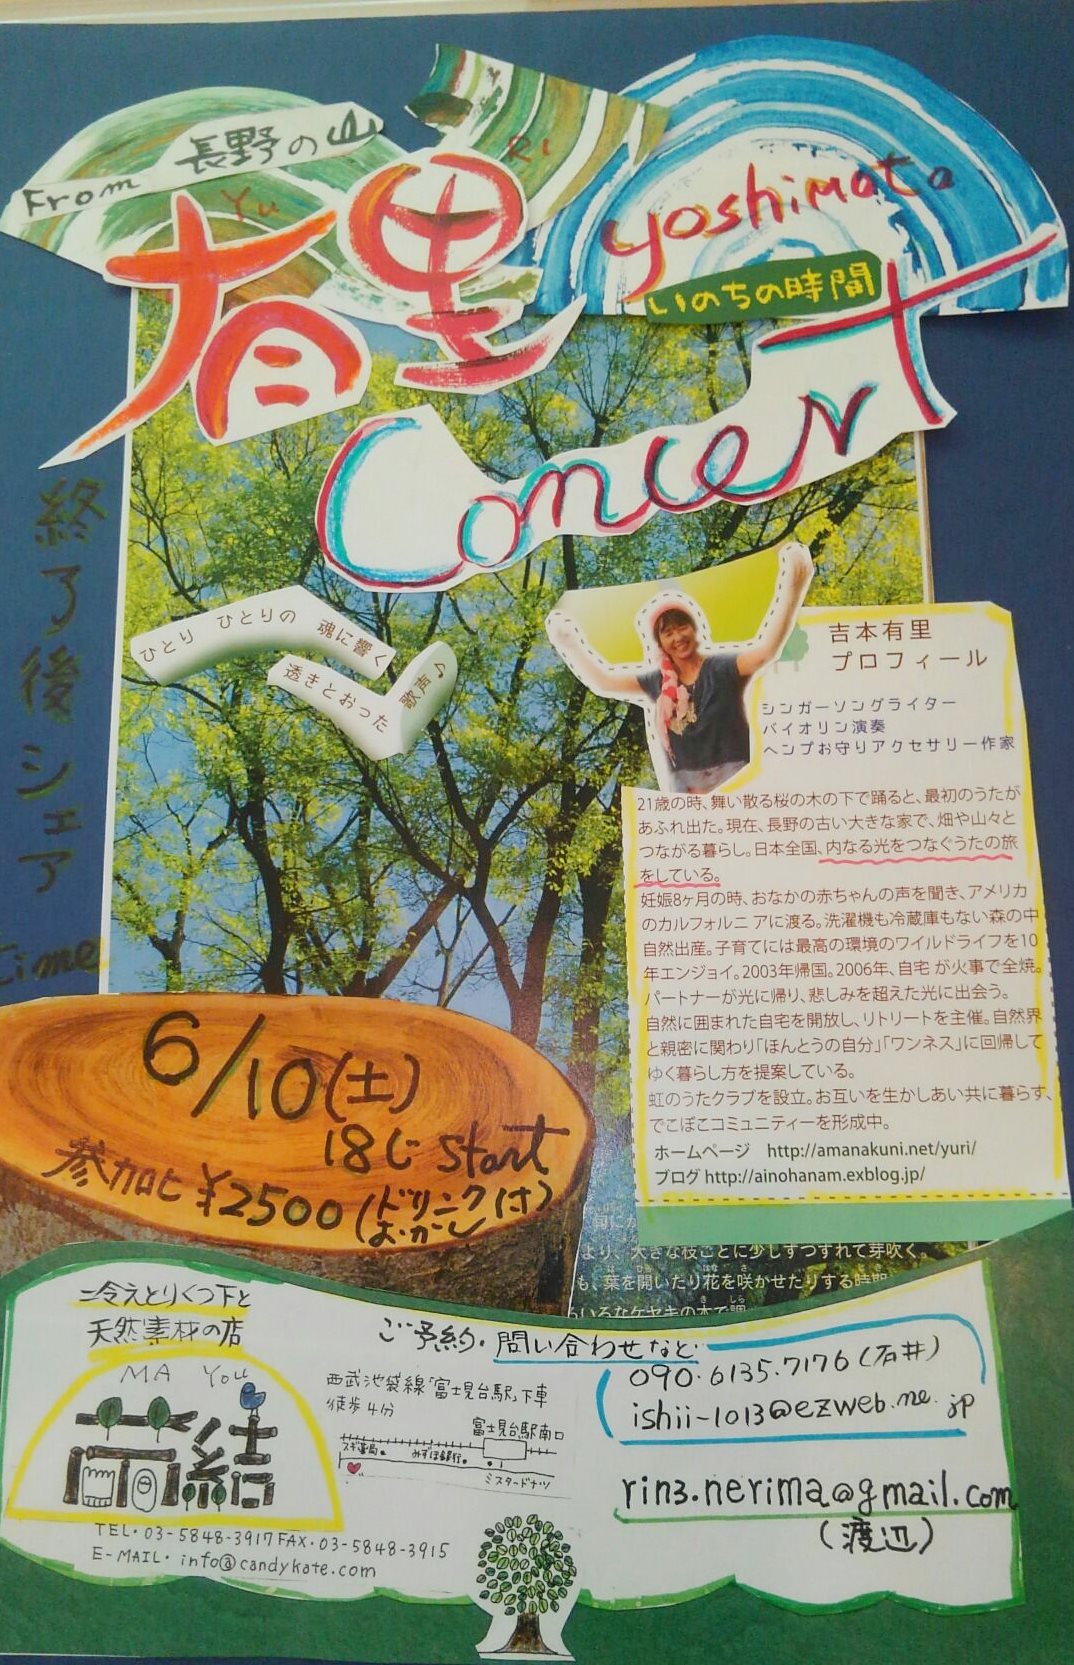 From 長野の山
Yu Ri
有里 Yoshimoto
いのちの時間
Concert
終了後シェア
time
ひとり ひとりの 魂に響く
透きとおった 歌声♪
吉本有里
プロフィール
シンガーソングライター
バイオリン演奏
ヘンプお守りアクセサリー作家
21歳の時、舞い散る桜の木の下で踊ると、最初のうたが
あふれ出た。現在、長野の古い大きな家で、畑や山々と
つながる暮らし。日本全国、内なる光をつなぐうたの旅
をしている。
妊娠8ヶ月の時、おなかの赤ちゃんの声を聞き、アメリカ
のカルフォルニアに渡る。洗濯機も冷蔵庫もない森の中
自然出産。子育てには最高の環境のワイルドライフを10
年エンジョイ。2003年帰国。2006年、自宅が火事で全焼。
パートナーが光に帰り、悲しみを超えた光に出会う。
自然に囲まれた自宅を開放し、リトリートを主催。自然界
と親密に関わり「ほんとうの自分」「ワンネス」に回帰して
ゆく暮らし方を提案している。
虹のうたクラブを設立。お互いを生かしあい共に暮らす、
でこぼこコミュニティーを形成中。
ホームページ http://amanakuni.net/yuri/
ブログ http://ainohanam.exblog.jp/
6/10(土)
18じ start
参加ヒ ¥2500(ドリンク おかし付)
より、大きな枝ごとに少しずつずれて芽吹く。
も、葉を開いたり花を咲かせたりする時期
いろなケヤキの木で調
冷えとりくつ下と
天然素材の店
MA You
繭結
TEL・03-5848-3917 FAX・03-5848-3915
E-MAIL・info@candykate.com
ご予約・問い合わせなど
西武池袋線「富士見台駅」下車
徒歩4分
富士見台駅南口
スギ薬局 みずほ銀行
ミスタードナツ
090.6135.7176(石井)
ishii-1013@ezweb.ne.jp
rin3.nerima@gmail.com
(渡辺)